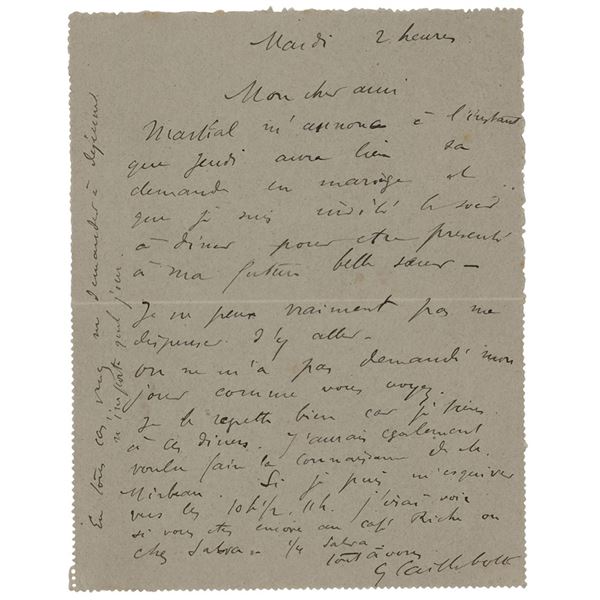 Mardi 2 heures
Mon cher ami
Martial m'annonce à l'instant
que jeudi aura lieu sa
demande en mariage et
que je suis invité le soir
à diner pour etre présenté
à ma future belle sœur –
Je ne peux vraiment pas me
dispenser d'y aller –
on ne m'a pas demandé mon
jour comme vous voyez.
Je le regrette bien car je tiens
à ces diners. J'aurais également
voulu faire la connaissance de
Mirbeau. Si je puis m'esquiver
vers les 10h1/2, 11h. j'irai voir
si vous etes encore au café Riche ou
chez
Tout à vous
G Caillebotte
En tous cas, venez me demander à dejeuner
n'importe quel jour.